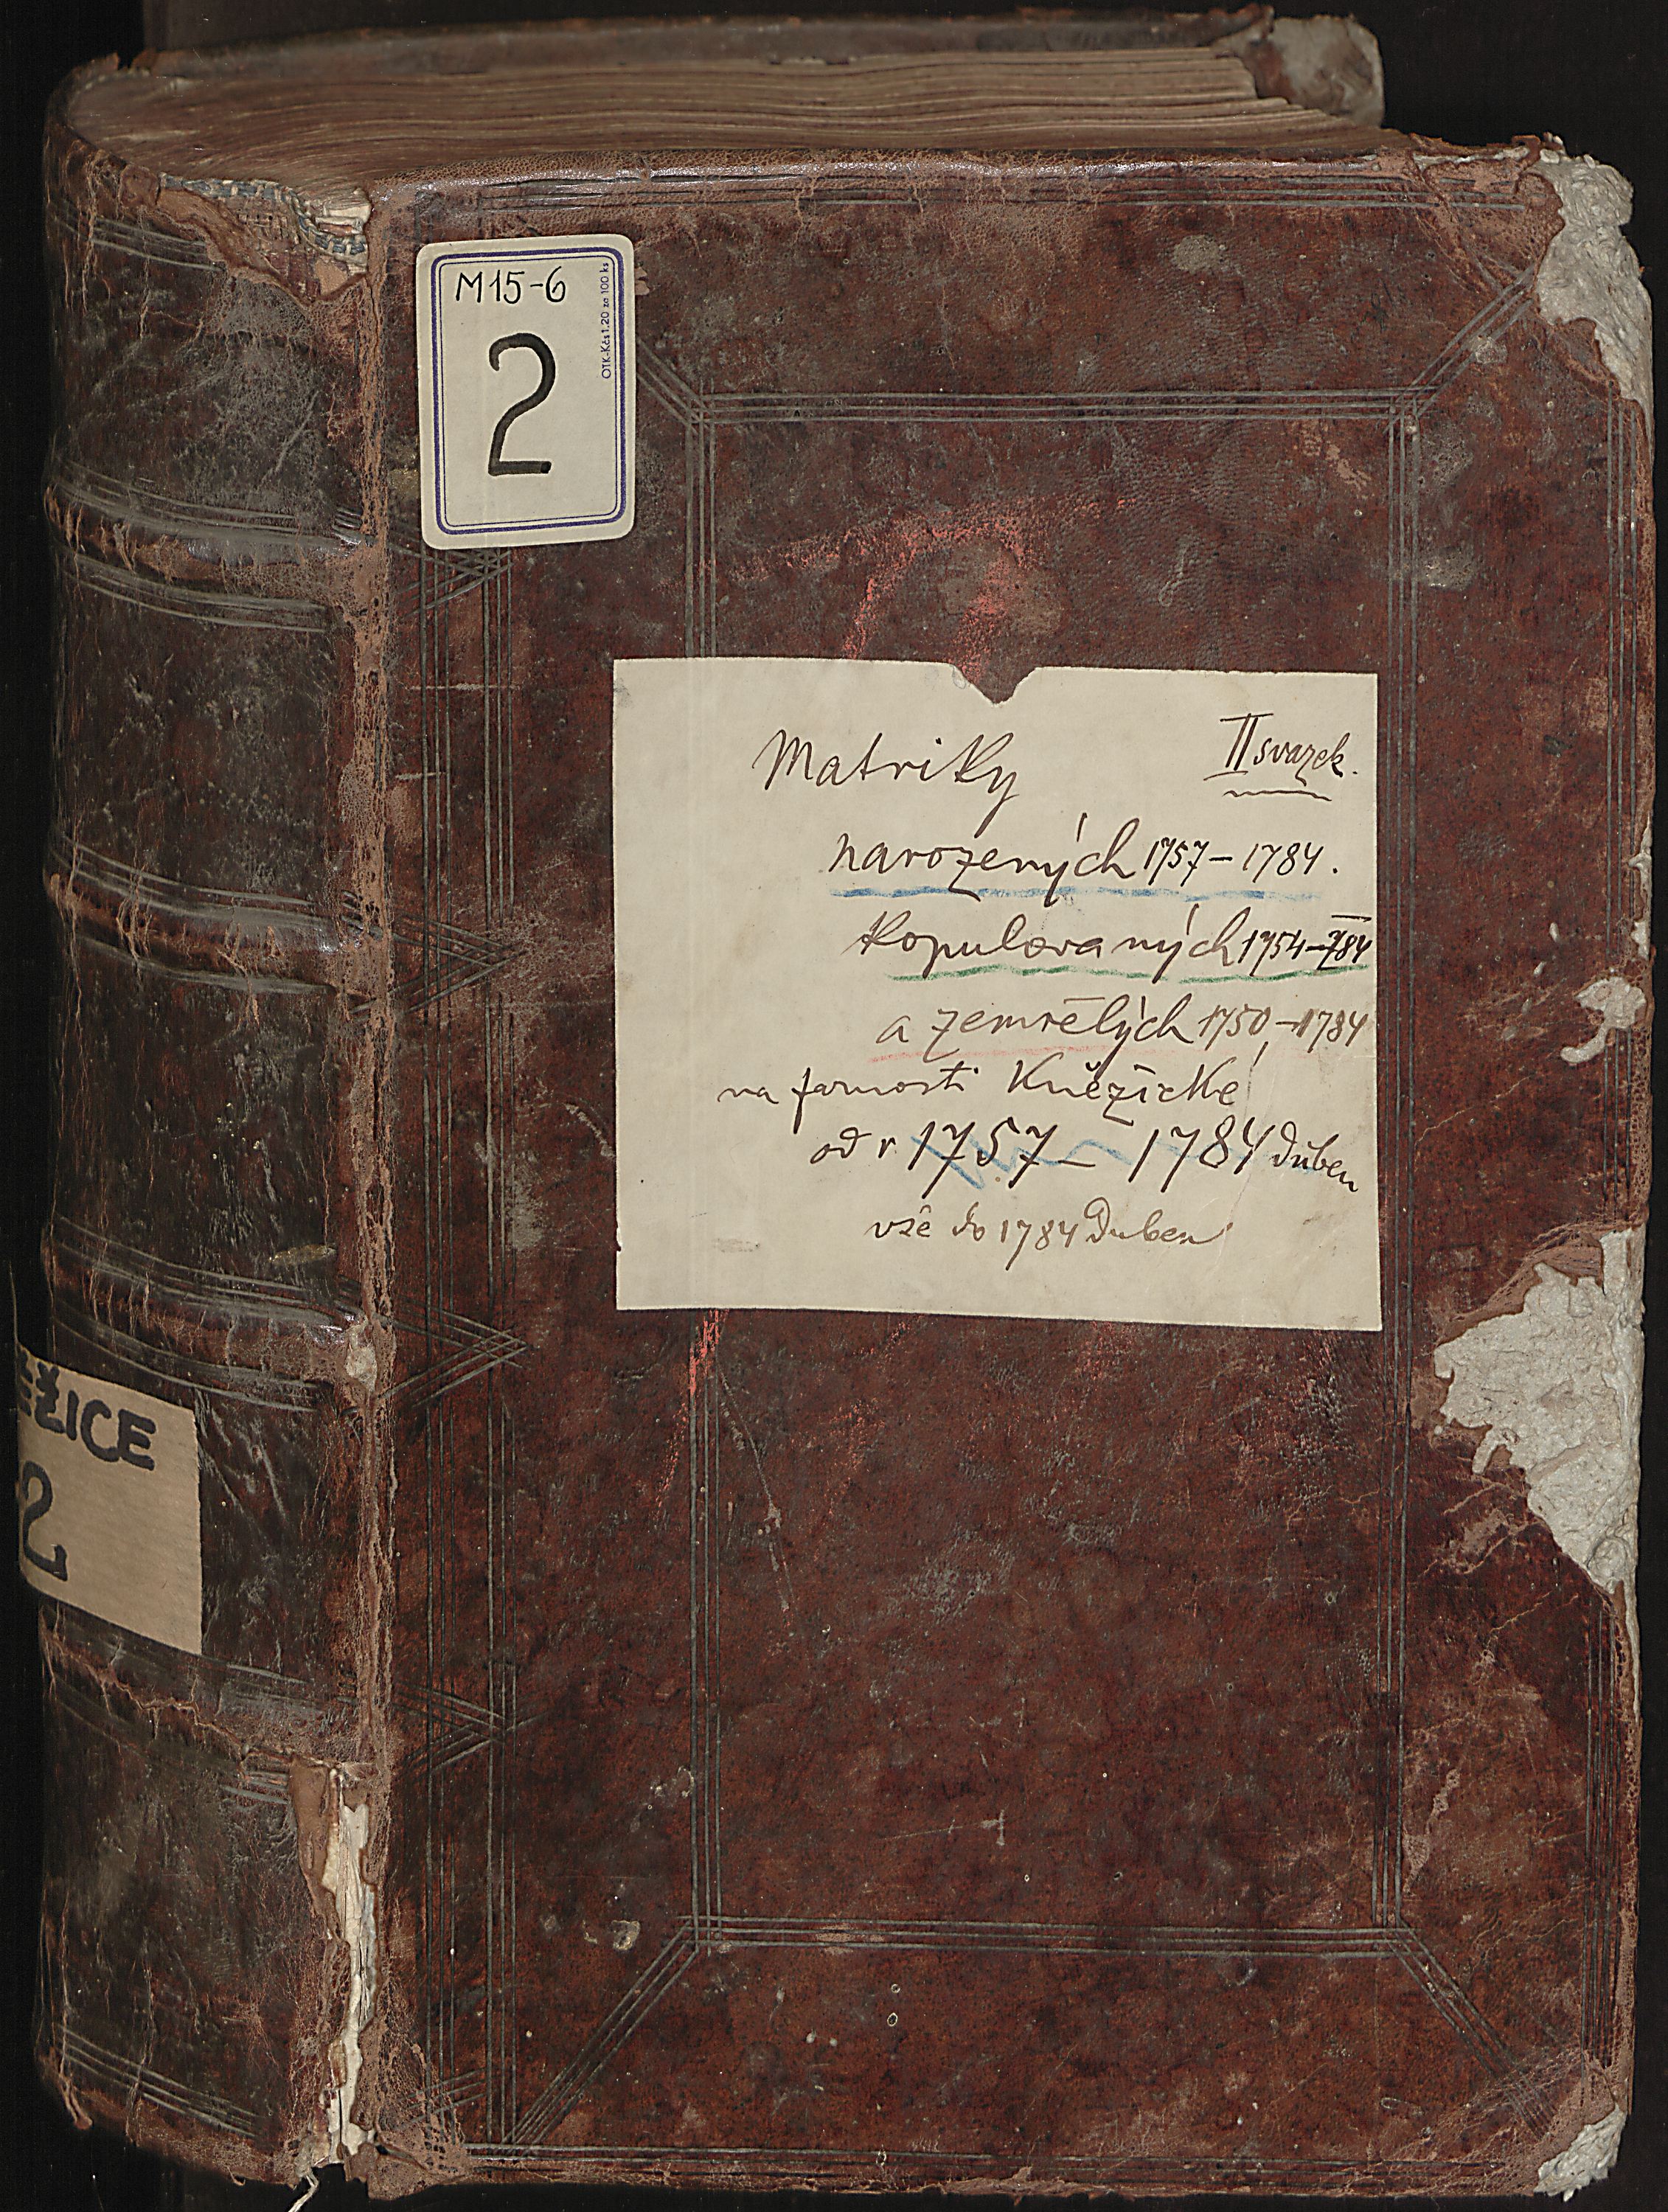 M15-6
OTK-Kčs 1.20 za 100 ks
2
Matriky II svazek.
narozených 1757 – 1784.
Kopulovaných 1754–784
a zemřelých 1750 – 1784
na farnosti Kněžické
od r 1757 – 1784 Duben
vše do 1784 Duben
ĚŽICE
2